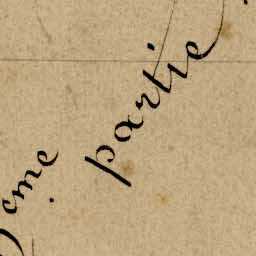 eme. partie